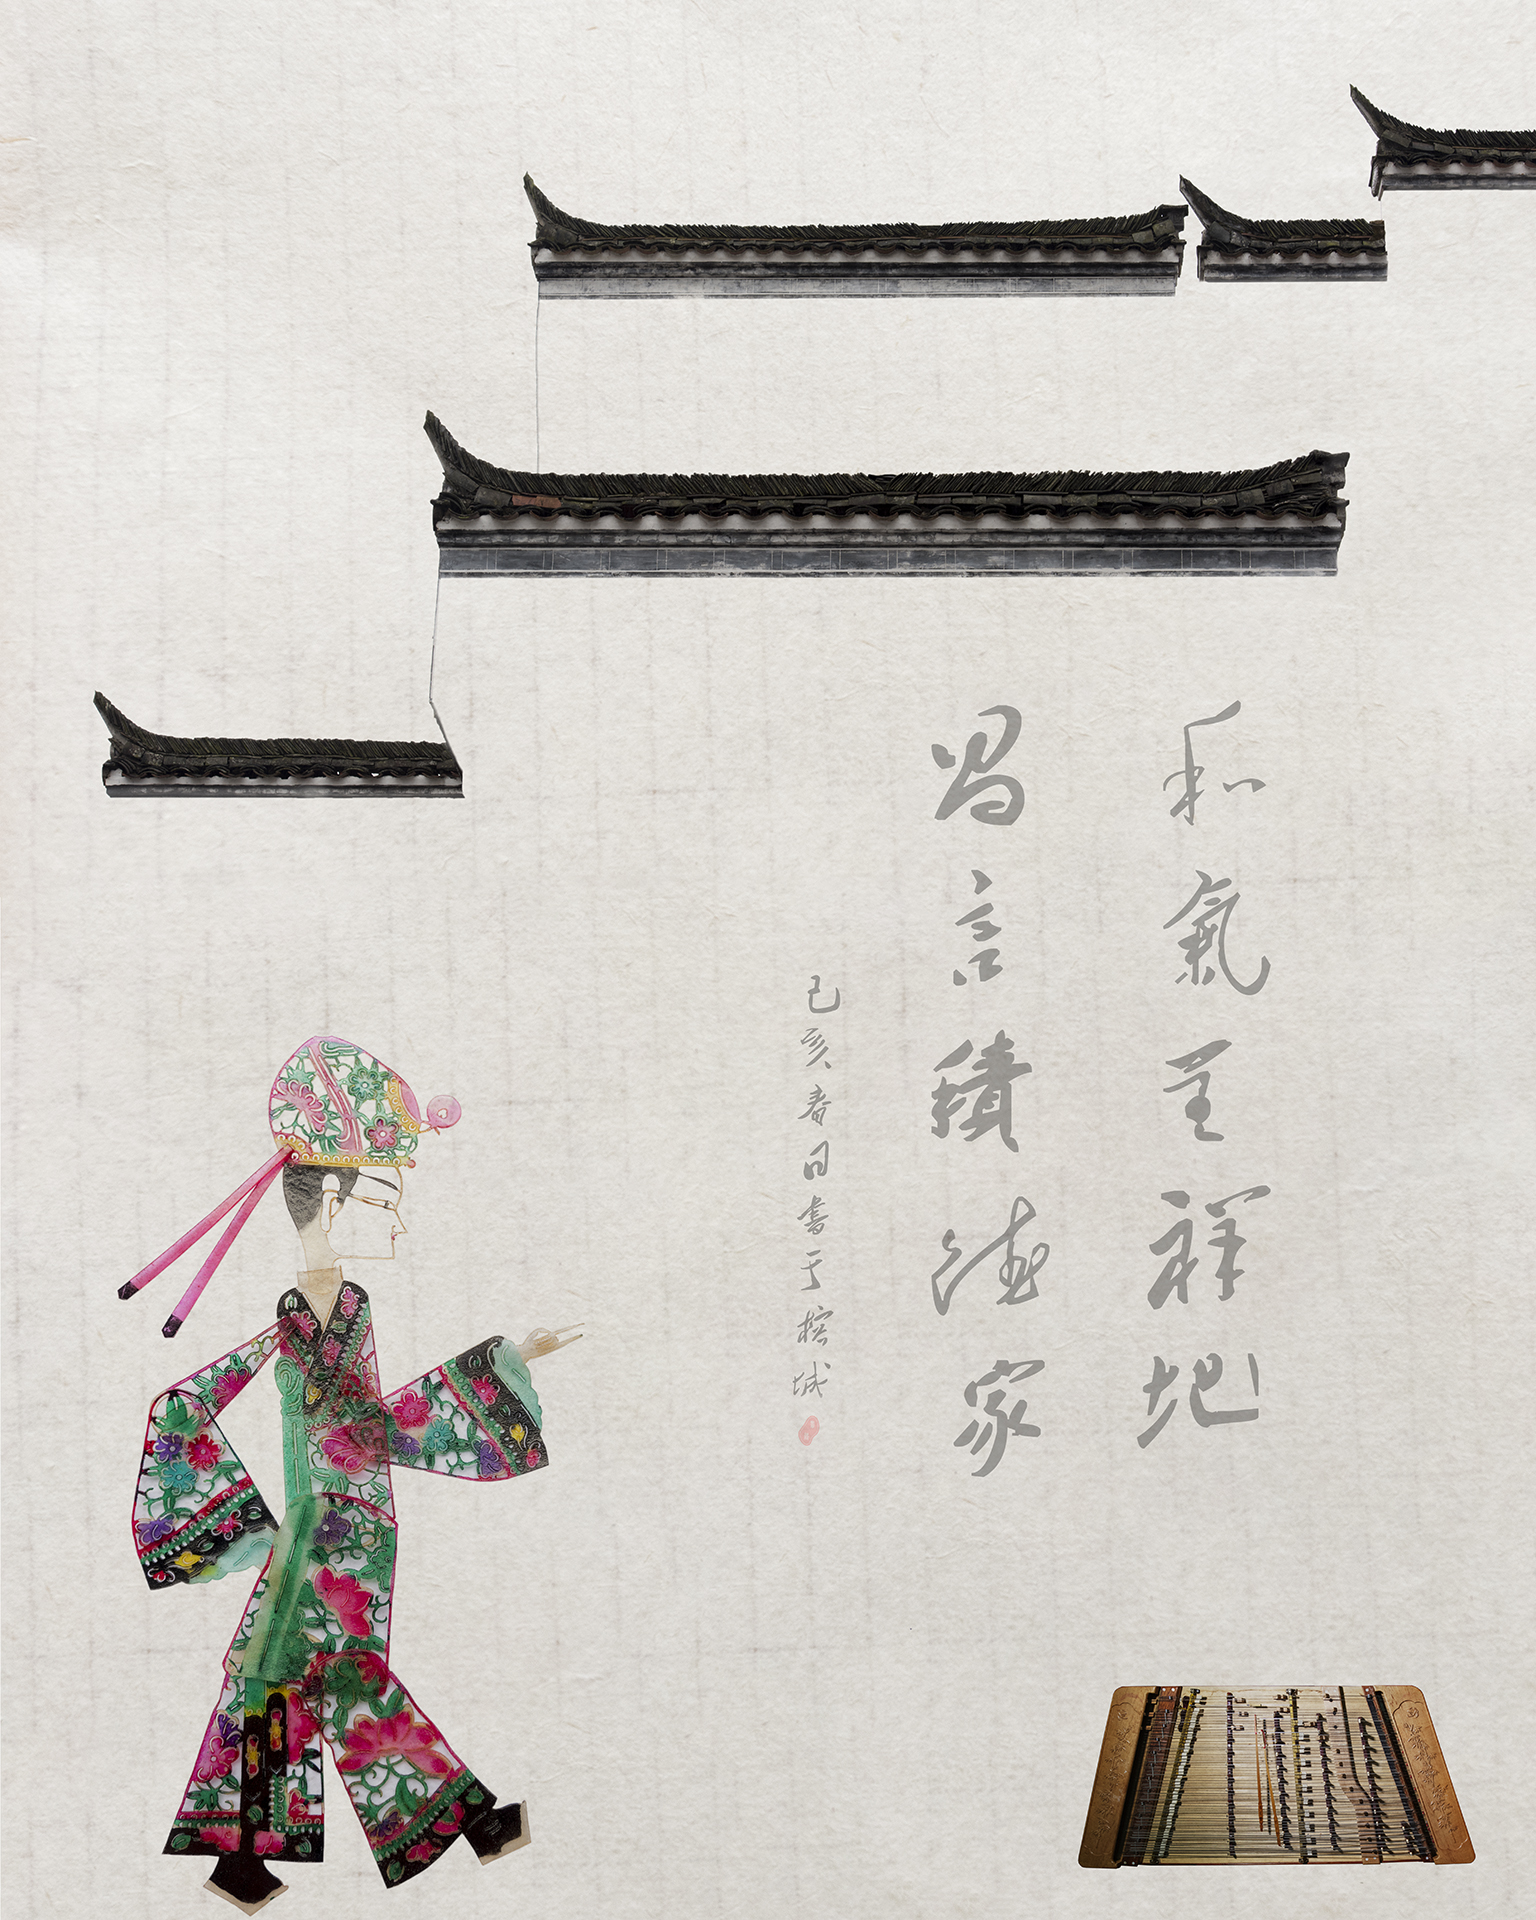 和氣呈祥地
言積德家
己亥春日書于榕城